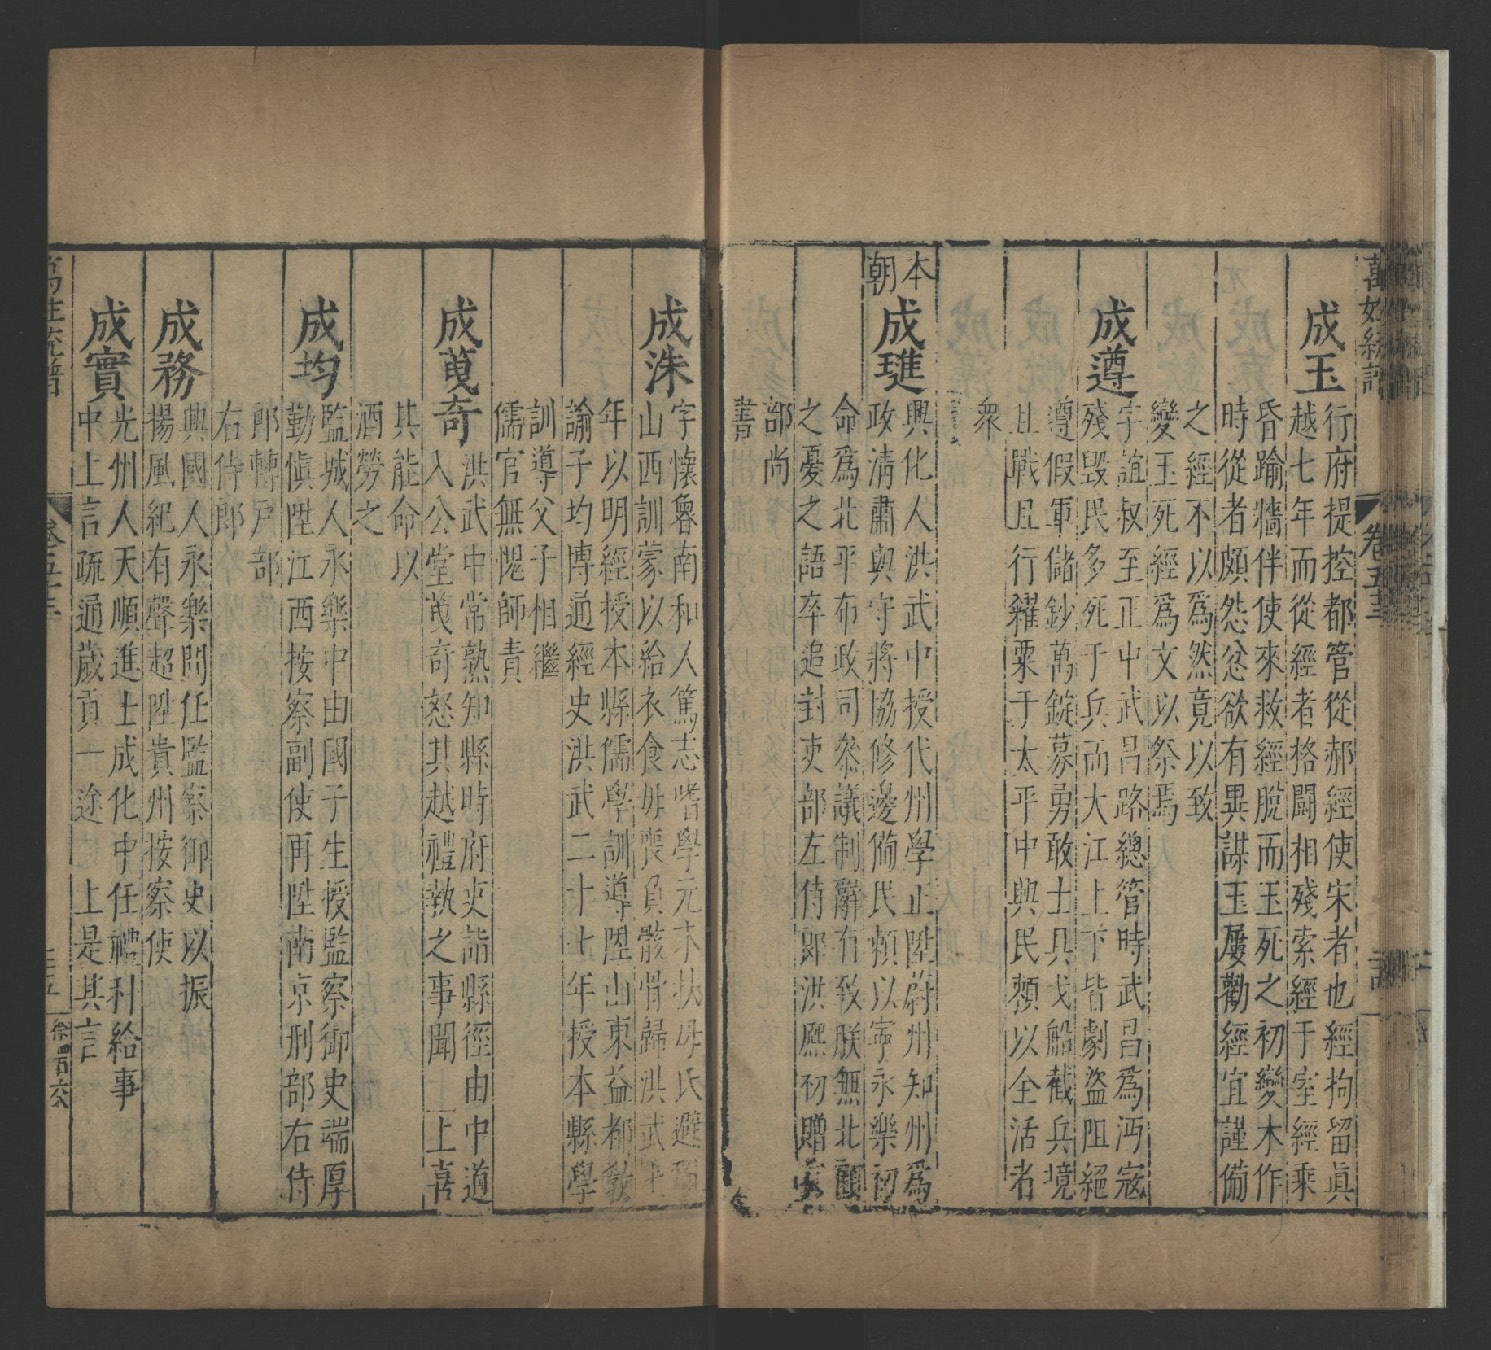 萬姓統譜
卷五十三
成玉
行府提控都管從郝經使宋者也經拘留眞
越七年而從經者格鬬相殘索經于室經乘
昏踰牆伴使來救經脫而玉死之初變木作
時從者頗怨忿欲有異謀玉屢勸經宜謹備
之經不以爲然竟以致
變玉死經爲文以祭焉
成遵
字誼叔至正中武昌路總管時武昌爲沔寇
殘毀民多死于兵而大江上下皆劇盜阻絕
遵假軍儲鈔萬錠募勇敢士具戈船截兵境
且戰且行糴粟于太平中興民頼以全活者
衆
本朝
成璡
興化人洪武中授代州學正陞蔚州知州爲
政清肅與守將協修邊備民頼以寧永樂初
命爲北平布政司叅議制辭有致朕無北顧
之憂之語卒追封吏部左侍郎洪熙初贈
部尚
書
成洙
字懷魯南和人篤志嗜學元末扶母氏避
山西訓蒙以給衣食母喪負骸骨歸洪武
年以明經授本縣儒學訓導陞山東益都敎
諭子均博通經史洪武二十七年授本縣學
訓導父子相繼
儒官無愧師責
成䓻奇
洪武中常熟知縣時府吏詣縣徑由中道
入公堂䓻奇怒其越禮執之事聞 上喜
其能命以
酒勞之
成均
監城人永樂中由國子生授監察御史端厚
勤愼陞江西按察副使再陞南京刑部右侍
郎轉戶部
右侍郎
成務
興國人永樂間任監察御史以振
揚風紀有聲超陞貴州按察使
成實
光州人天順進士成化中任禮科給事
中上言疏通歲貢一途 上是其言